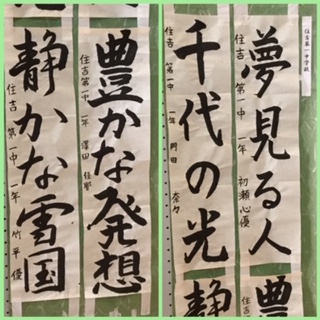 豊かな発想
住吉第一中 一年 澤田
静かな雪国
住吉第一中 一年 竹平 優
住吉第一中学校
夢見る人
住吉第一中 一年 初瀬心優
千代の光
住吉第一中 一年 岡田 奈々
豊
静